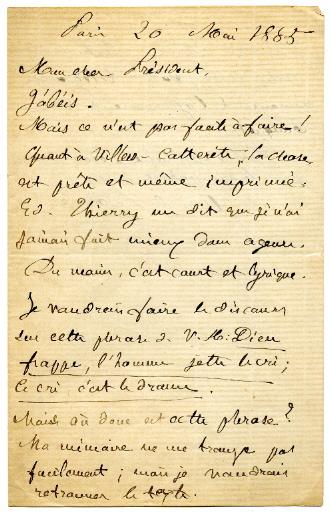 Paris 20 Mai 1885
Mon cher Président,
J'obéis.
Mais ce n'est pas facile à faire !
Quant à Villers-Cotterêts, la chose
est prête et même imprimée.
Ed. Thierry me dit que je n'ai
jamais fait mieux dans ce genre.
Du moins, c'est court et lyrique.
Je voudrais faire le discours
sur cette phrase de V. H. : Dieu
frappe, l'homme jette le cri ;
le cri c'est le drame.
Mais où donc est cette phrase ?
Ma mémoire ne me trompe pas
facilement ; mais je voudrais
retrouver le texte.